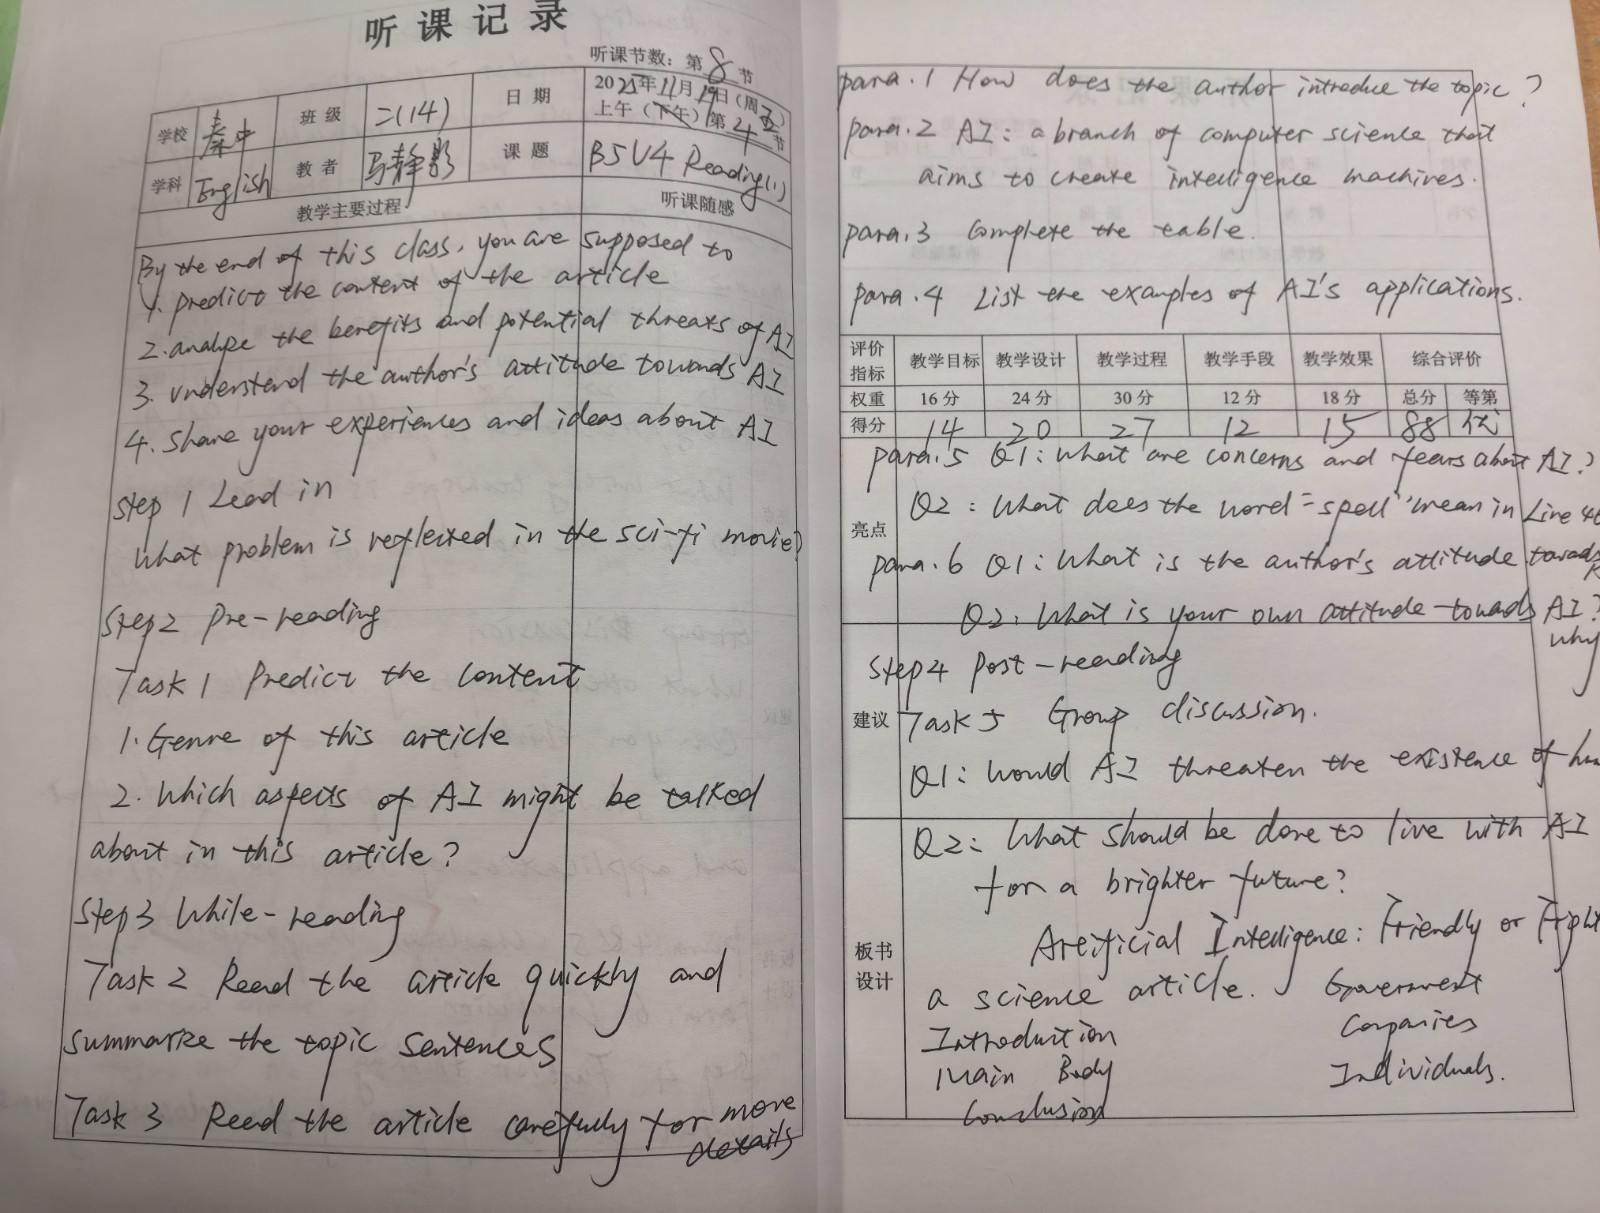 听课记录
听课节数：第8节
学校 秦中 班级 二(14) 日期 2025年11月19日（周三）
上午（下午）第4节
学科 English 教者 马静影 课题 B5U4 Reading(1)
教学主要过程 听课随感
By the end of this class, you are supposed to
1. predict the content of the article
2. analyze the benefits and potential threats of AI
3. understand the author's attitude towards AI
4. share your experiences and ideas about AI
Step 1 Lead in
What problem is reflected in the sci-fi movie?
Step2 Pre-reading
Task 1 Predict the content
1. Genre of this article
2. Which aspects of AI might be talked
about in this article?
Step3 While-reading
Task 2 Read the article quickly and
summarize the topic sentences
Task 3 Read the article carefully for more
details
para.1 How does the author introduce the topic?
para.2 AI: a branch of computer science that
aims to create intelligence machines.
para.3 Complete the table.
para.4 List the examples of AI's applications.
评价指标 教学目标 教学设计 教学过程 教学手段 教学效果 综合评价
权重 16分 24分 30分 12分 18分 总分 等第
得分 14 20 27 12 15 88 优
para.5 Q1: What are concerns and fears about AI?
Q2: What does the word "spell" mean in Line
亮点
para.6 Q1: What is the author's attitude towards
Q2: What is your own attitude towards AI?
why
Step4 Post-reading
建议
Task 5 Group discussion.
Q1: Would AI threaten the existence of
Q2: What should be done to live with AI
for a brighter future?
板书设计
Areificial Intelligence: Friendly or
a science article. Government
Introduction Companies
Main Body Individuals.
Conclusion